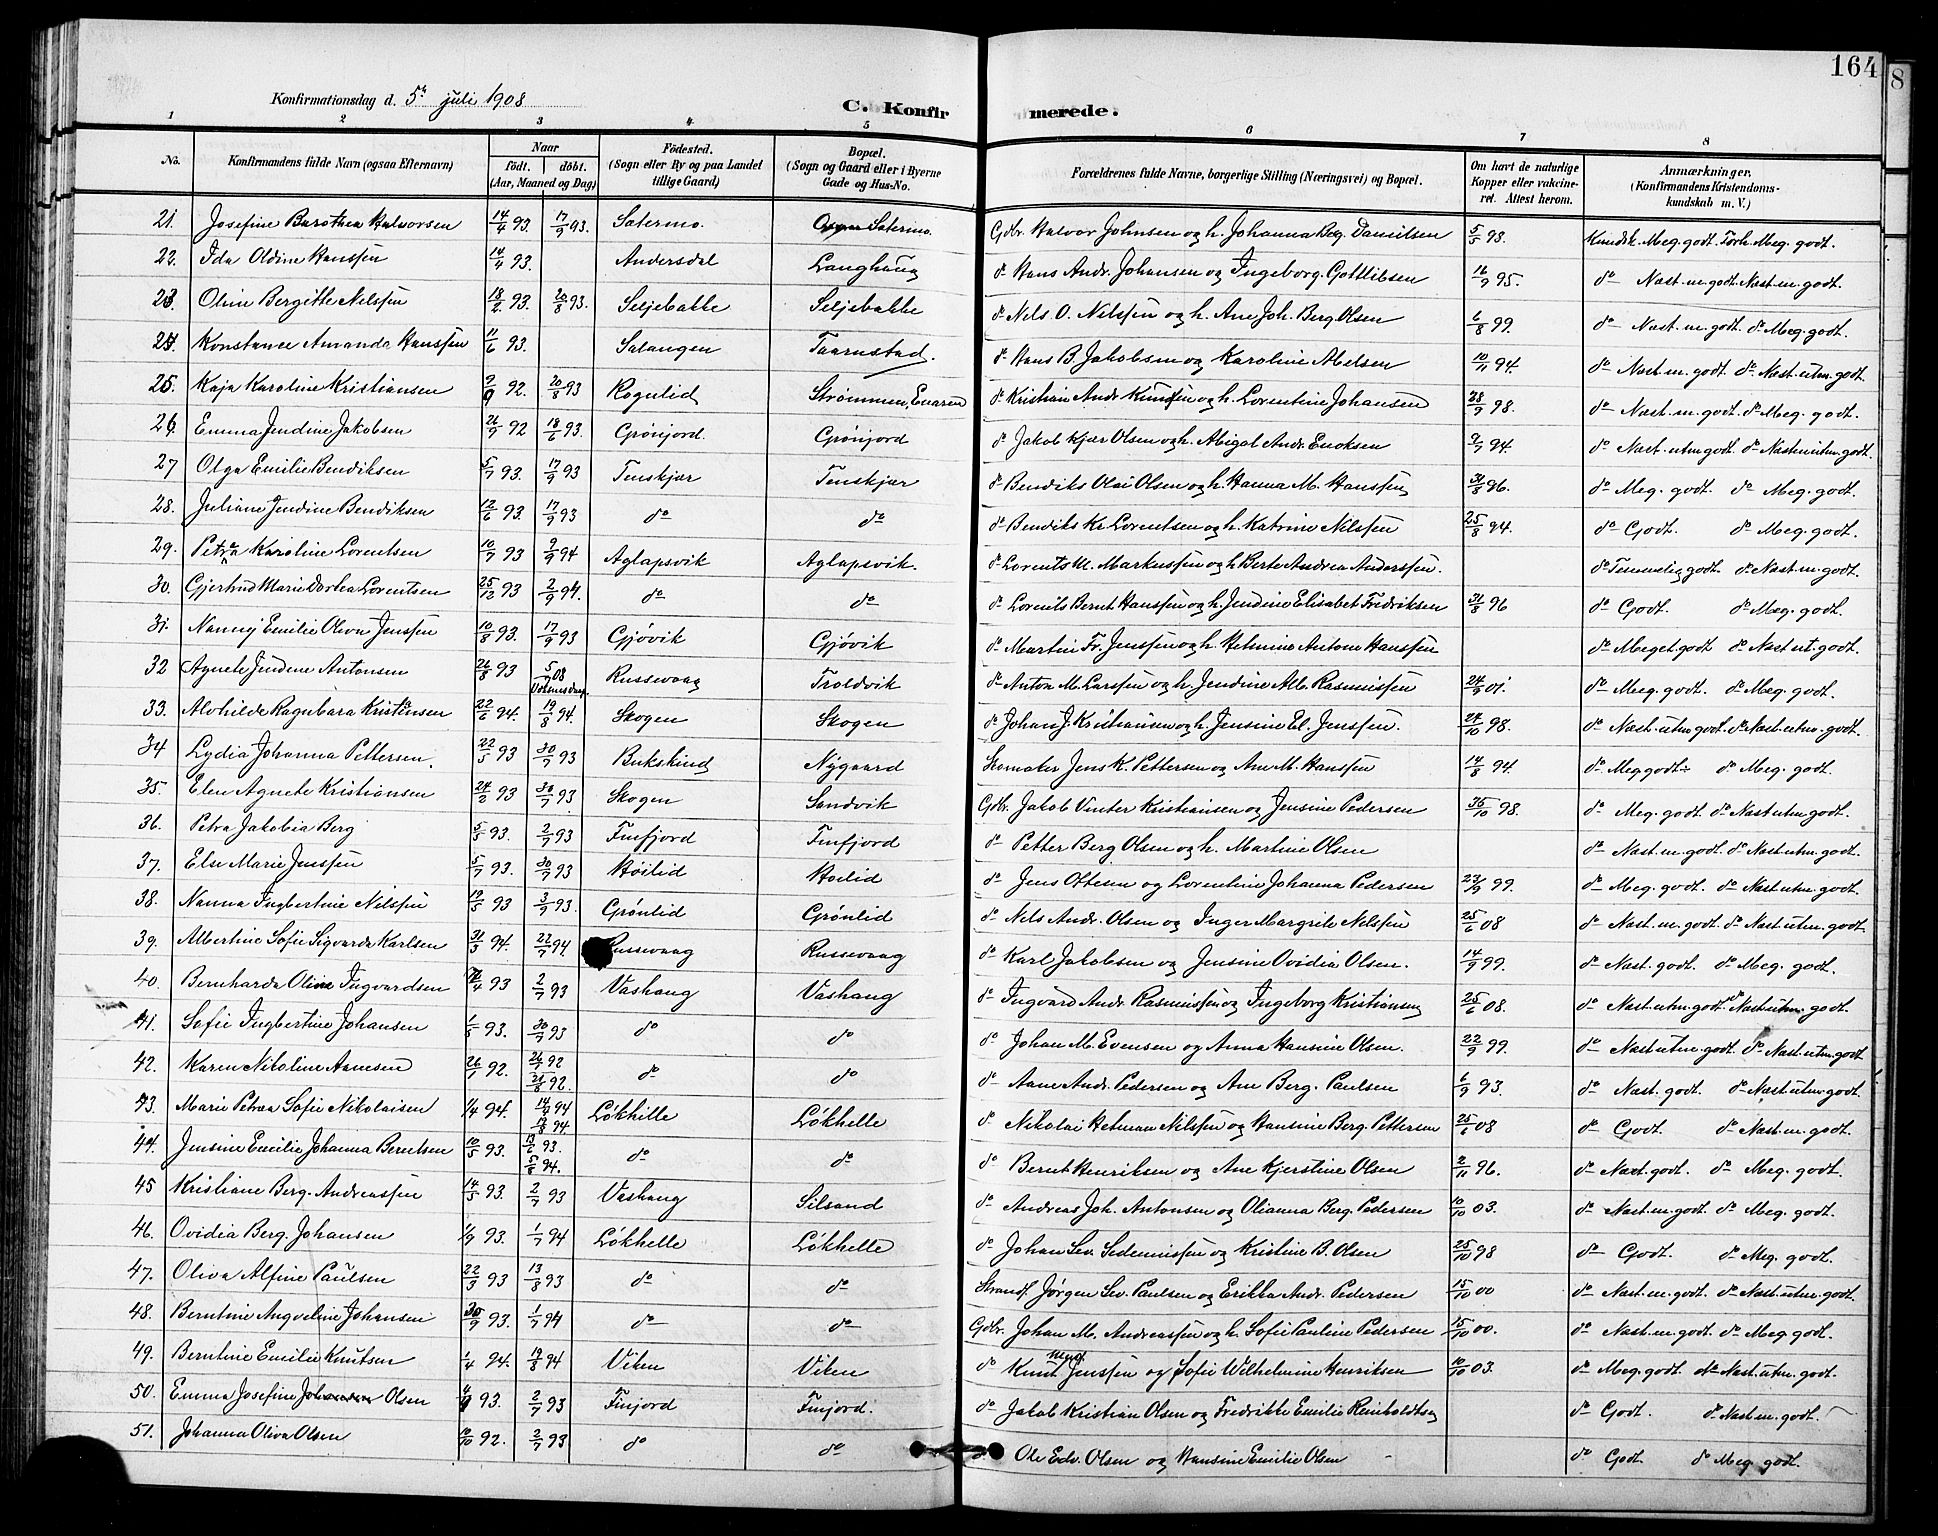 164
8
Konfirmationsdag d. 5te juli 1908
C. Konfirmerede.
1 2 3 4 5 6 7 8
No. Konfirmandens fulde Navn (ogsaa Efternavn) Naar födt. döbt. (Aar, Maaned og Dag) Födested. (Sogn eller By og paa Landet tillige Gaard) Bopæl. (Sogn og Gaard eller i Byerne Gade og Hus-No. Forældrenes fulde Navne, borgerlige Stilling (Næringsvei) og Bopæl. Om havt de naturlige Kopper eller vakcineret. Attest herom. Anmærkninger. (Konfirmandens Kristendomskundskab m. V.)
21. Josefine Barothea Halvorsen 14/4 93. 17/9 93. Sætermo. Sætermo. Gdbr. Halvor Johnsen og h. Johanna Reg. Danielsen 5/5 98. Kundsk. Meg. godt. Forh. Meg. godt.
22. Ida Oldine Hanssen 14/4 93. Andersdal Langhaug do Hans Andr. Johansen og Ingeborg Gottliebsen 16/9 95. do Næst. m. godt. Næst. m. godt.
23. Oline Bergitte Nilssen 18/2 93. 20/8 93. Seljebakke Seljebakke do Nels O. Nilssen og h. Ane Joh. Berg Olsen 6/8 99. do Næst. m. godt do Meg. godt.
24. Konstance Amanda Hanssen 11/6 93. Salangen Taarnstad. do Hans B. Jakobsen og Karoline Abelsen 10/11 94. do Næst. m. godt. do Næst. utm. godt.
25. Kaja Karoline Kristiansen 9/9 92. 20/8 93 Rognlid Strømmen, do Kristian Andr. Knudsen og h. Lorentine Johansen 28/9 98. do Næst. m. godt. do Meg. godt.
26. Emma Jendine Jakobsen 26/9 92 18/6 93. Grönjord. Grönjord do Jakob Kjær Olsen og h. Abigal Andr. Enoksen 9/7 94. do Næst. utm godt. do Næst utm. godt.
27 Olga Emilie Bendiksen 5/7 93. 17/9 93 Tenskjær Tenskjær do Bendiks Olai Olsen og h. Hanna M. Hanssen 31/8 96. do Meg. godt. do Meg. godt.
28. Juliane Jendine Bendiksen 12/6 93. 17/9 93 do do do Bendiks Kr. Lorentsen og h. Katrine Nilssen 25/8 94. do Godt. do Meg. godt.
29. Petra Karoline Lorentsen 10/7 93 2/9 94 Aglapsvik Aglapsvik. do Lorents M. Markussen og h Berte Andrea Anderssen. do Temmelig godt. do Næst. m. godt.
30. Gjertrud Marie Dortea Lorentsen 25/12 93 2/9 94. do do do Lorents Bernt Hanssen og h. Jendine Elisabet Fredriksen 31/8 96 do Godt. do Meg. godt.
31. Nanny Emilie Oliva Jenssen 10/8 93. 17/9 93 Gjövik Gjövik do Martin Fr. Jenssen og h. Helmine Antone Hanssen do Meget godt do Næst ut. godt.
32 Agnete Jendine Antonsen 26/8 93 5/7 08 Russevaag Troldvik do Anton M. Larssen og h. Jendine Alb. Rasmussen 24/9 01. do Meg. godt. do Meg. godt.
33. Alvhilde Ragnbara Kristensen 22/6 94. 19/8 94. Skogen Skogen do Johan J. Kristiansen og h. Jensine El. Jenssen. 24/10 98. do Næst. utm godt. do Næst. utm. godt.
34 Lydia Johanna Pettersen. 22/5 93 30/7 93 Bukskind Nygaard Skomaker Jens K. Pettersen og Ane M. Hanssen 14/8 94. do Meg godt do Meg. godt.
35. Elen Agnete Kristiansen 24/2 93 30/7 93. Skogen Sandvik Gdbr. Jakob Vinter Kristiansen og Jensine Pedersen 98. do Meg. godt do Næst utm godt.
36. Petra Jakobia Berg 5/5 93. 2/7 93 Finfjord Finfjord do Petter Berg Olsen og h. Martine Olsen do Næst. m. godt do Næst utm. godt.
37. Else Marie Jenssen 5/7 93. 30/7 93 Höilid Höilid do Jens Ottesen og Lorentine Johanna Pedersen 23/9 99. do Meg. godt. do Næst utm. godt.
38. Nanna Ingbertine Nilssen 19/5 93 3/9 93. Grönlid Grönlid do Nels Andr. Olsen og Inger Margrite Nilssen 25/6 08 do Næst. m. godt. do Næst utm. godt.
39. Albertine Sofie Sigvarda Karlsen 31/3 94. 22/7 94. Russevaag Russevaag do Karl Jakobsen og Jensine Ovidia Olsen. 14/9 99. do Næst. godt. do Meg. godt.
40. Bernharda Oline Ingvardsen 93 2/7 93 Vashaug Vashaug do Ingvard Andr. Rasmussen og Ingeborg Kristiansen 25/6 08. do Næst. utm. godt do Næst utm. godt.
41. Sofie Ingbertine Johansen 1/5 93. 30/7 93 do do do Johan M. Evensen og Anna Hansine Olsen. 22/9 99. do Næst utm. godt. do Næst utm. godt
42. Karen Nikoline Aanesen 26/7 92. 26/7 92 21/8 92. do do do Aane Andr. Pedersen og Ane Berg. Paulsen 6/9 93. do Næst. godt. do Næst utm. godt.
43. Marie Petrea Sofie Nikolaisen 1/4 94. 94 94. Lökhelle Lökhelle do Nikolai Hetman Nilssen og Hansine Berg. Pettersen 25/6 08 do Godt do Næst. m. godt.
44. Jensine Emilie Johanna Berntsen 10/5 93. 13/6 93. 5/8 94. do do do Bernt Henriksen og Ane Kjerstine Olsen 2/11 96. do Næst. godt. do Meg. godt.
45 Kristiane Berg. Andreassen 14/5 93. 2/7 93 Vashaug Silsand do Andreas Joh. Antonsen og Olianna Berg. Pedersen 10/10 03. do Næst. m. godt do Meg. godt.
46. Ovidia Berg. Johansen 1/9 93. 1/7 94 Lökhelle Lökhelle do Johan Sev. Sedeniussen og Kristine B. Olsen 25/10 98 do Godt. do Meg. godt.
47. Oliva Alfine Paulsen 22/3 93 13/8 93 do do Strands. Jørgen Sev. Paulsen og Erikka Andr. Pedersen 15/10 00 do Næst. m. godt. do Næst. utm. godt.
48. Berntine Angveline Johansen 30/9 93. 1/7 94 do do Gdbr. Johan M. Andreassen og h. Sofie Pauline Pedersen 15/10 00. do Næst. m. godt. do Meg. godt.
49. Berntine Emilie Knutsen 1/4 94. 19/8 94 Viken Viken do Knut Jenssen og Sofie Wilhelmine Henriksen 10/10 03. do Meg. godt. do Næst utm. godt.
50. Emma Josefine Johansen Olsen 93 2/7 93 Finjord Finjord. do Jakob Kristian Olsen og Fredrikke Emilie Reinholdtsen do Godt. do Næst. m. godt.
51. Johanna Oliva Olsen 10/10 92. 2/7 93 do do Ole Edv. Olsen og Hansine Emilie Olsen do Godt. do Meg. godt.